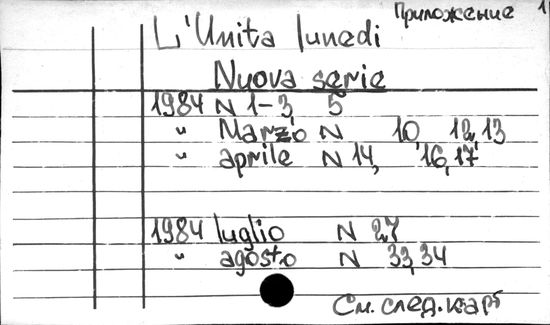 Приложение 1
L'Unita lunedi
Nuova serie
1984 N 1-3 5
" Marzio N 10 12,13
" aprile N 14, 16,17
1984 luglio N 27
" agosto N 33,34
См. след. карт